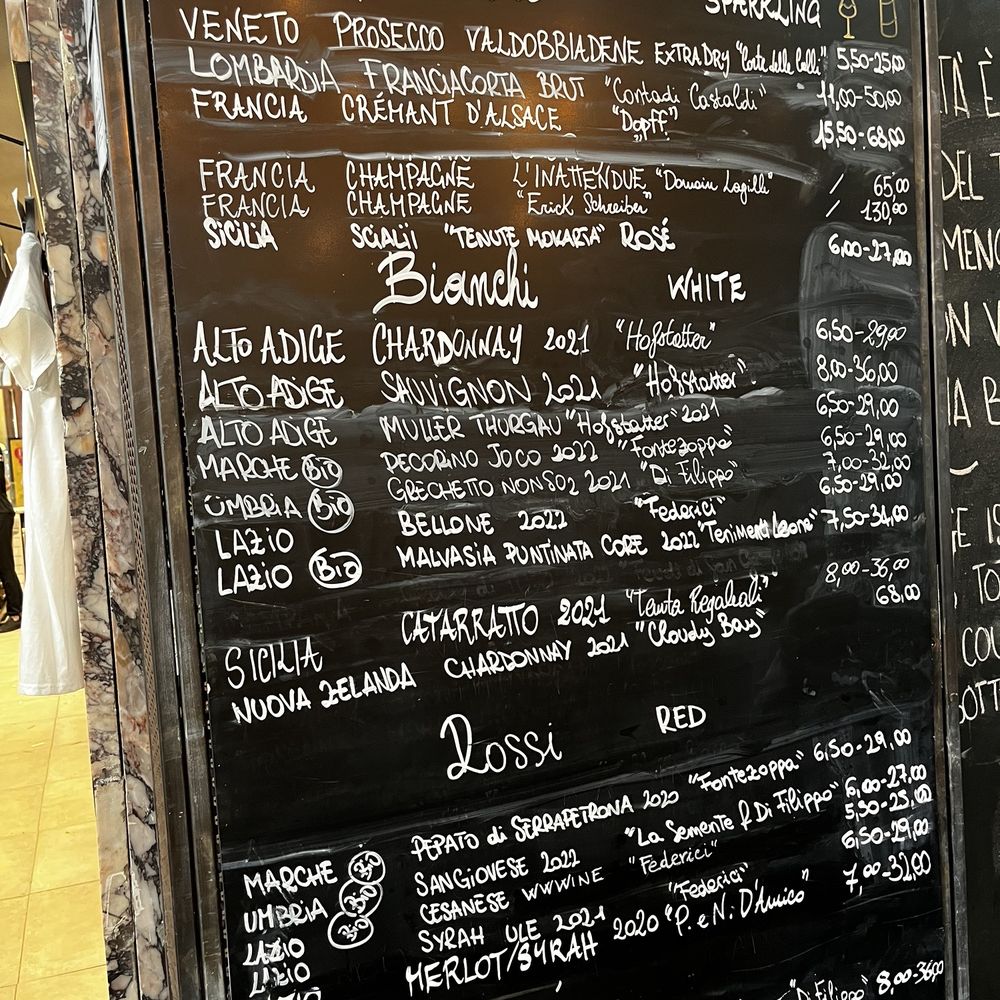 SPARKLING
VENETO PROSECCO VALDOBBIADENE EXTRA DRY "Corte delle Calli" 5,50-25,00
LOMBARDIA FRANCIACORTA BRUT "Contadi Castaldi" 11,00-50,00
FRANCIA CRÉMANT D'ALSACE "Dopff" 15,50-68,00
FRANCIA CHAMPAGNE L'INATTENDUE "Domain Lagille" / 65,00
FRANCIA CHAMPAGNE "Erick Schreiber" / 130,00
SICILIA "TENUTE MOKARTA" ROSÉ 6,00-27,00
Bianchi WHITE
ALTO ADIGE CHARDONNAY 2021 "Hofstatter" 6,50-29,00
ALTO ADIGE SAUVIGNON 2021 "Hofstatter" 8,00-36,00
ALTO ADIGE MULLER THURGAU "Hofstatter" 2021 6,50-29,00
MARCHE Bio PECORINO JOCO 2022 "Fontezoppa" 6,50-29,00
UMBRIA Bio GRECHETTO NONSO2 2021 "Di Filippo" 7,00-32,00
LAZIO BELLONE 2022 "Federici" 6,50-29,00
LAZIO Bio MALVASIA PUNTINATA CORE 2022 "Tenimenti Leone" 7,50-34,00
SICILIA CATARRATTO 2021 "Tenuta Regaleali" 8,00-36,00
NUOVA ZELANDA CHARDONNAY 2021 "Cloudy Bay" 68,00
Rossi RED
MARCHE Bio PEPATO di SERRAPETRONA 2020 "Fontezoppa" 6,50-29,00
UMBRIA Bio SANGIOVESE 2022 "La Semente R Di Filippo" 6,00-27,00
LAZIO Bio CESANESE WWWINE "Federici" 5,50-25,00
LAZIO SYRAH ULE 2021 "Federici" 6,50-29,00
LAZIO MERLOT/SYRAH 2020 "P. e N. D'Amico" 7,00-32,00
"Di Filippo" 8,00-36,00
TÀ È
DEL T
MENO
ON V
A B
E IS
, TO
COL
SOTT